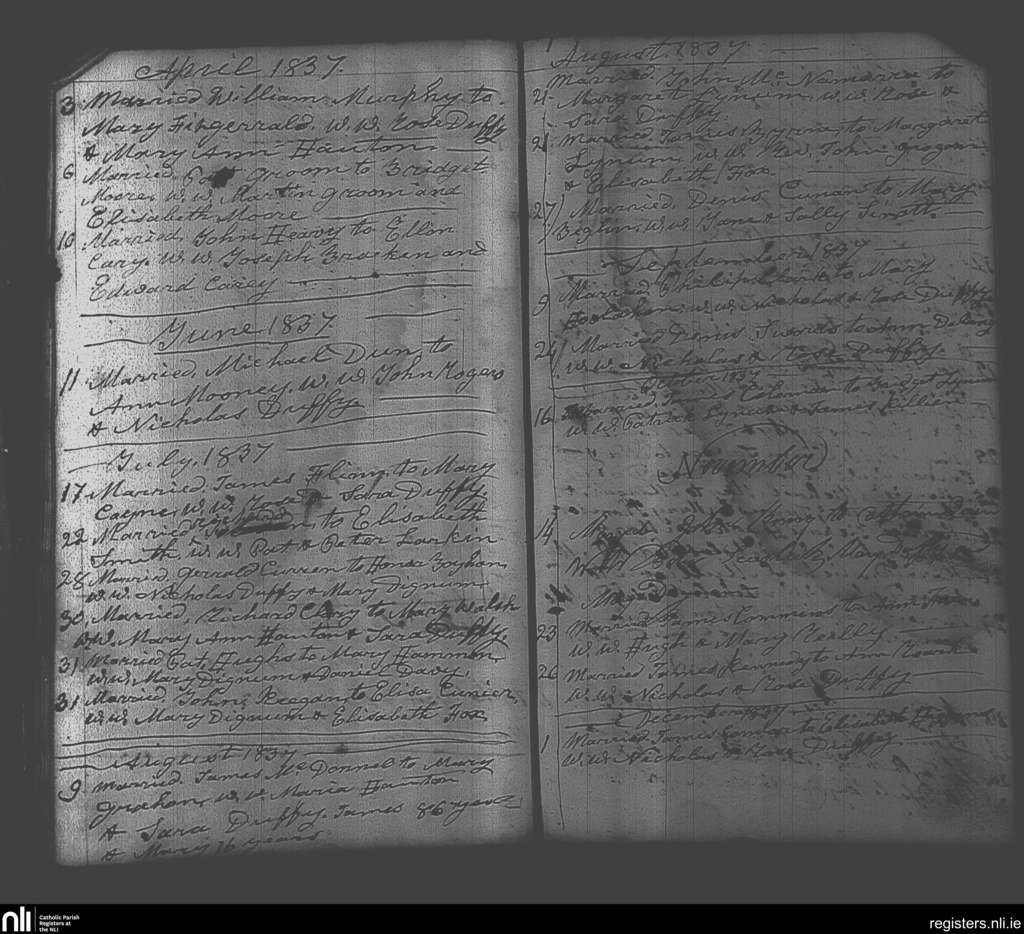 April 1837.
3 Married William Murphy to
Mary Fingerrald. W. W. Rose Duffy
& Mary Ann Hanton
6 Married Pat Groom to Bridget
Moore, W. W. Martin Groom and
Elisabeth Moore
10 Married, John Heavy to Ellen
Cary. W. W. Joseph Bracken and
Edward Carey
June 1837.
11 Married, Michael Dun, to
Ann Mooney, W. W. John Rogers
& Nicholas Duffy
July, 1837
17 Married, James Fliny, to Mary
Cayne, W. W. Rose & Sara Duffy.
22 Married to Elisabeth
Smith, W. W. Pat & Peter Larkin
28 Married, Gerrald Curren to Honor
W. W. Nicholas Duffy & Mary Dignum
30 Married, Richard to Mary Walsh
W. W. Mary Ann Hanton & Sara Duffy.
31 Married Pat. Hughs to Mary Hammon,
W. W. Mary Dignum & Daniel Davy
31 Married John, Keegan to Elisa
W. W. Mary Dignum & Elisabeth Fox
August 1837
9 Married, James McDonnel to Mary
W. W. Maria Hanton
& Sara Duffy. James 86 years
& Mary 16 years
August. 1837.
Married. John McNamarra to
21 Margaret Lynum, W. W. Rose &
Sara Duffy
21 Married James Byrne, to Margaret
Lynum, W. W. Rev. John Grogan
& Elisabeth Fox
27 Married, Denis Curan to Mary
Beglin, W. W. Jane & Sally Sinott
September 1837
9 Married Philip Clark to Mary
W. W. Nicholas & Rose Duffy
24 Married Denis to Ann Delany
W. W. Nicholas & Rose Duffy.
October 1837
16 Married James Coleman to Bridget Lynum
W. W. Patrick Lynum & James Killian
November
14 Married to
Mary
Mary
23 Married James Commins to Ann
W. W. Hugh & Mary Reilly
26 Married James Kennedy to Ann Rourke
W. W. Nicholas & Rose Duffy
December 1837
1 Married James Connor to Elisabeth
W. W. Nicholas & Rose Duffy
nli
Catholic Parish
Registers at
the NLI
registers.nli.ie